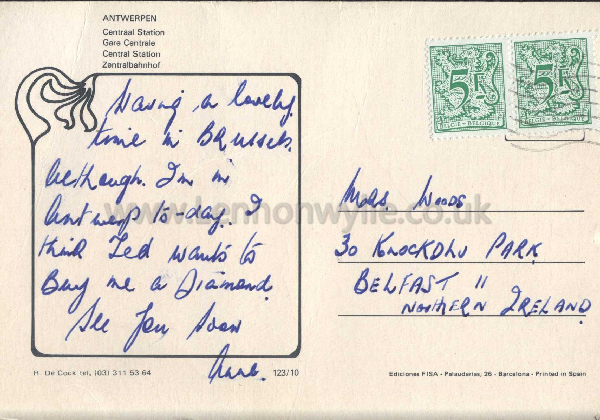 ANTWERPEN
Centraal Station
Gare Centrale
Central Station
Zentralbahnhof
Having a lovely
time in Brussels.
Although. I'm in
Antwerp to-day. I
think Ted wants to
Buy me a Diamond.
See you soon
5F
5F
BELGIE - BELGIQUE
www.Lennonwylie.co.uk
Mrs Woods
30 Knockdhu Park
Belfast 11
Northern Ireland
R. De Cock tel. (03) 311 53 64
123/10
Ediciones FISA - Palaudarias, 26 - Barcelona - Printed in Spain